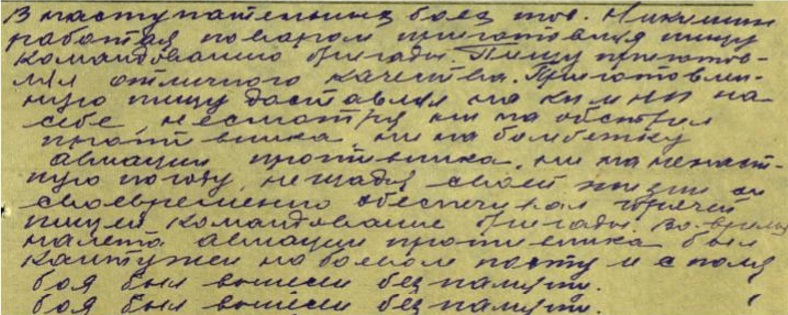 В наступательных боях тов. Никишин
работая поваром приготовлял пищу
командованию бригады. Пищу приготов-
лял отличного качества. Приготовлен-
ную пищу доставлял на КП и НП на
себе, несмотря ни на обстрел
противника ни на бомбежку
авиации противника, ни на ненаст-
ную погоду, нещадя своей жизни он
своевременно обеспечивал горячей
пищей командование бригады. Во время
налета авиации противника был
контужен на боевом посту и с поля
боя был вынесен без памяти.
боя был вынесен без памяти.